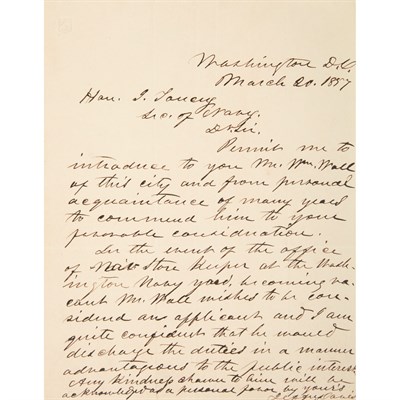 Washington D.C.
March 20. 1857
Hon. I. Toucey
Sec. of Navy.
Dr Sir.
Permit me to
introduce to you Mr. Wm. Wall
of this city and from personal
acquaintance of many years
to commend him to your
favorable consideration.
In the event of the office
of Store Keeper at the Wash-
ington Navy yard, becoming va-
cant Mr. Wall wishes to be con-
sidered an applicant and I am
quite confident that he would
discharge the duties in a manner
advantageous to the public interest
Any kindness shown to him will be
acknowledged as a personal favor by yours